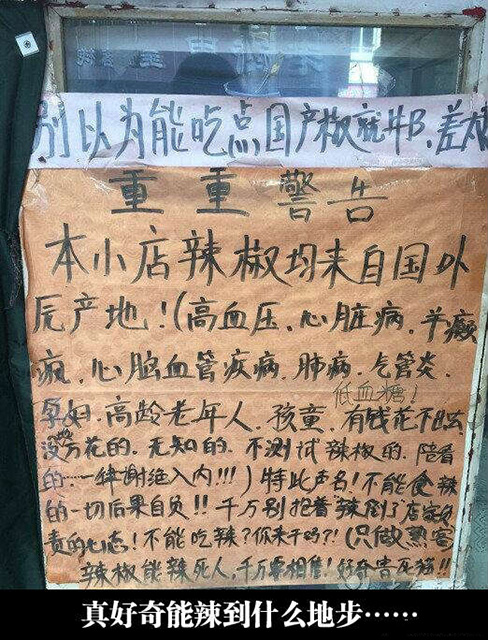 别以为能吃点国产椒就牛B.差
重重警告
本小店辣椒均来自国外
原产地！(高血压.心脏病.羊癫
疯.心脑血管疾病.肺病.气管炎.
低血糖！
孕妇.高龄老年人.孩童.有钱花不出去
没地方花的.无知的.不测试辣椒的.陪看
的……一律谢绝入内!!!)特此声名！不能食辣
的一切后果自负!!千万别抱着辣倒了店家负
责的心态！不能吃辣？你来干吗？！(只做熟客
辣椒能辣死人,千万要相信！好奇害死猫!!
真好奇能辣到什么地步……